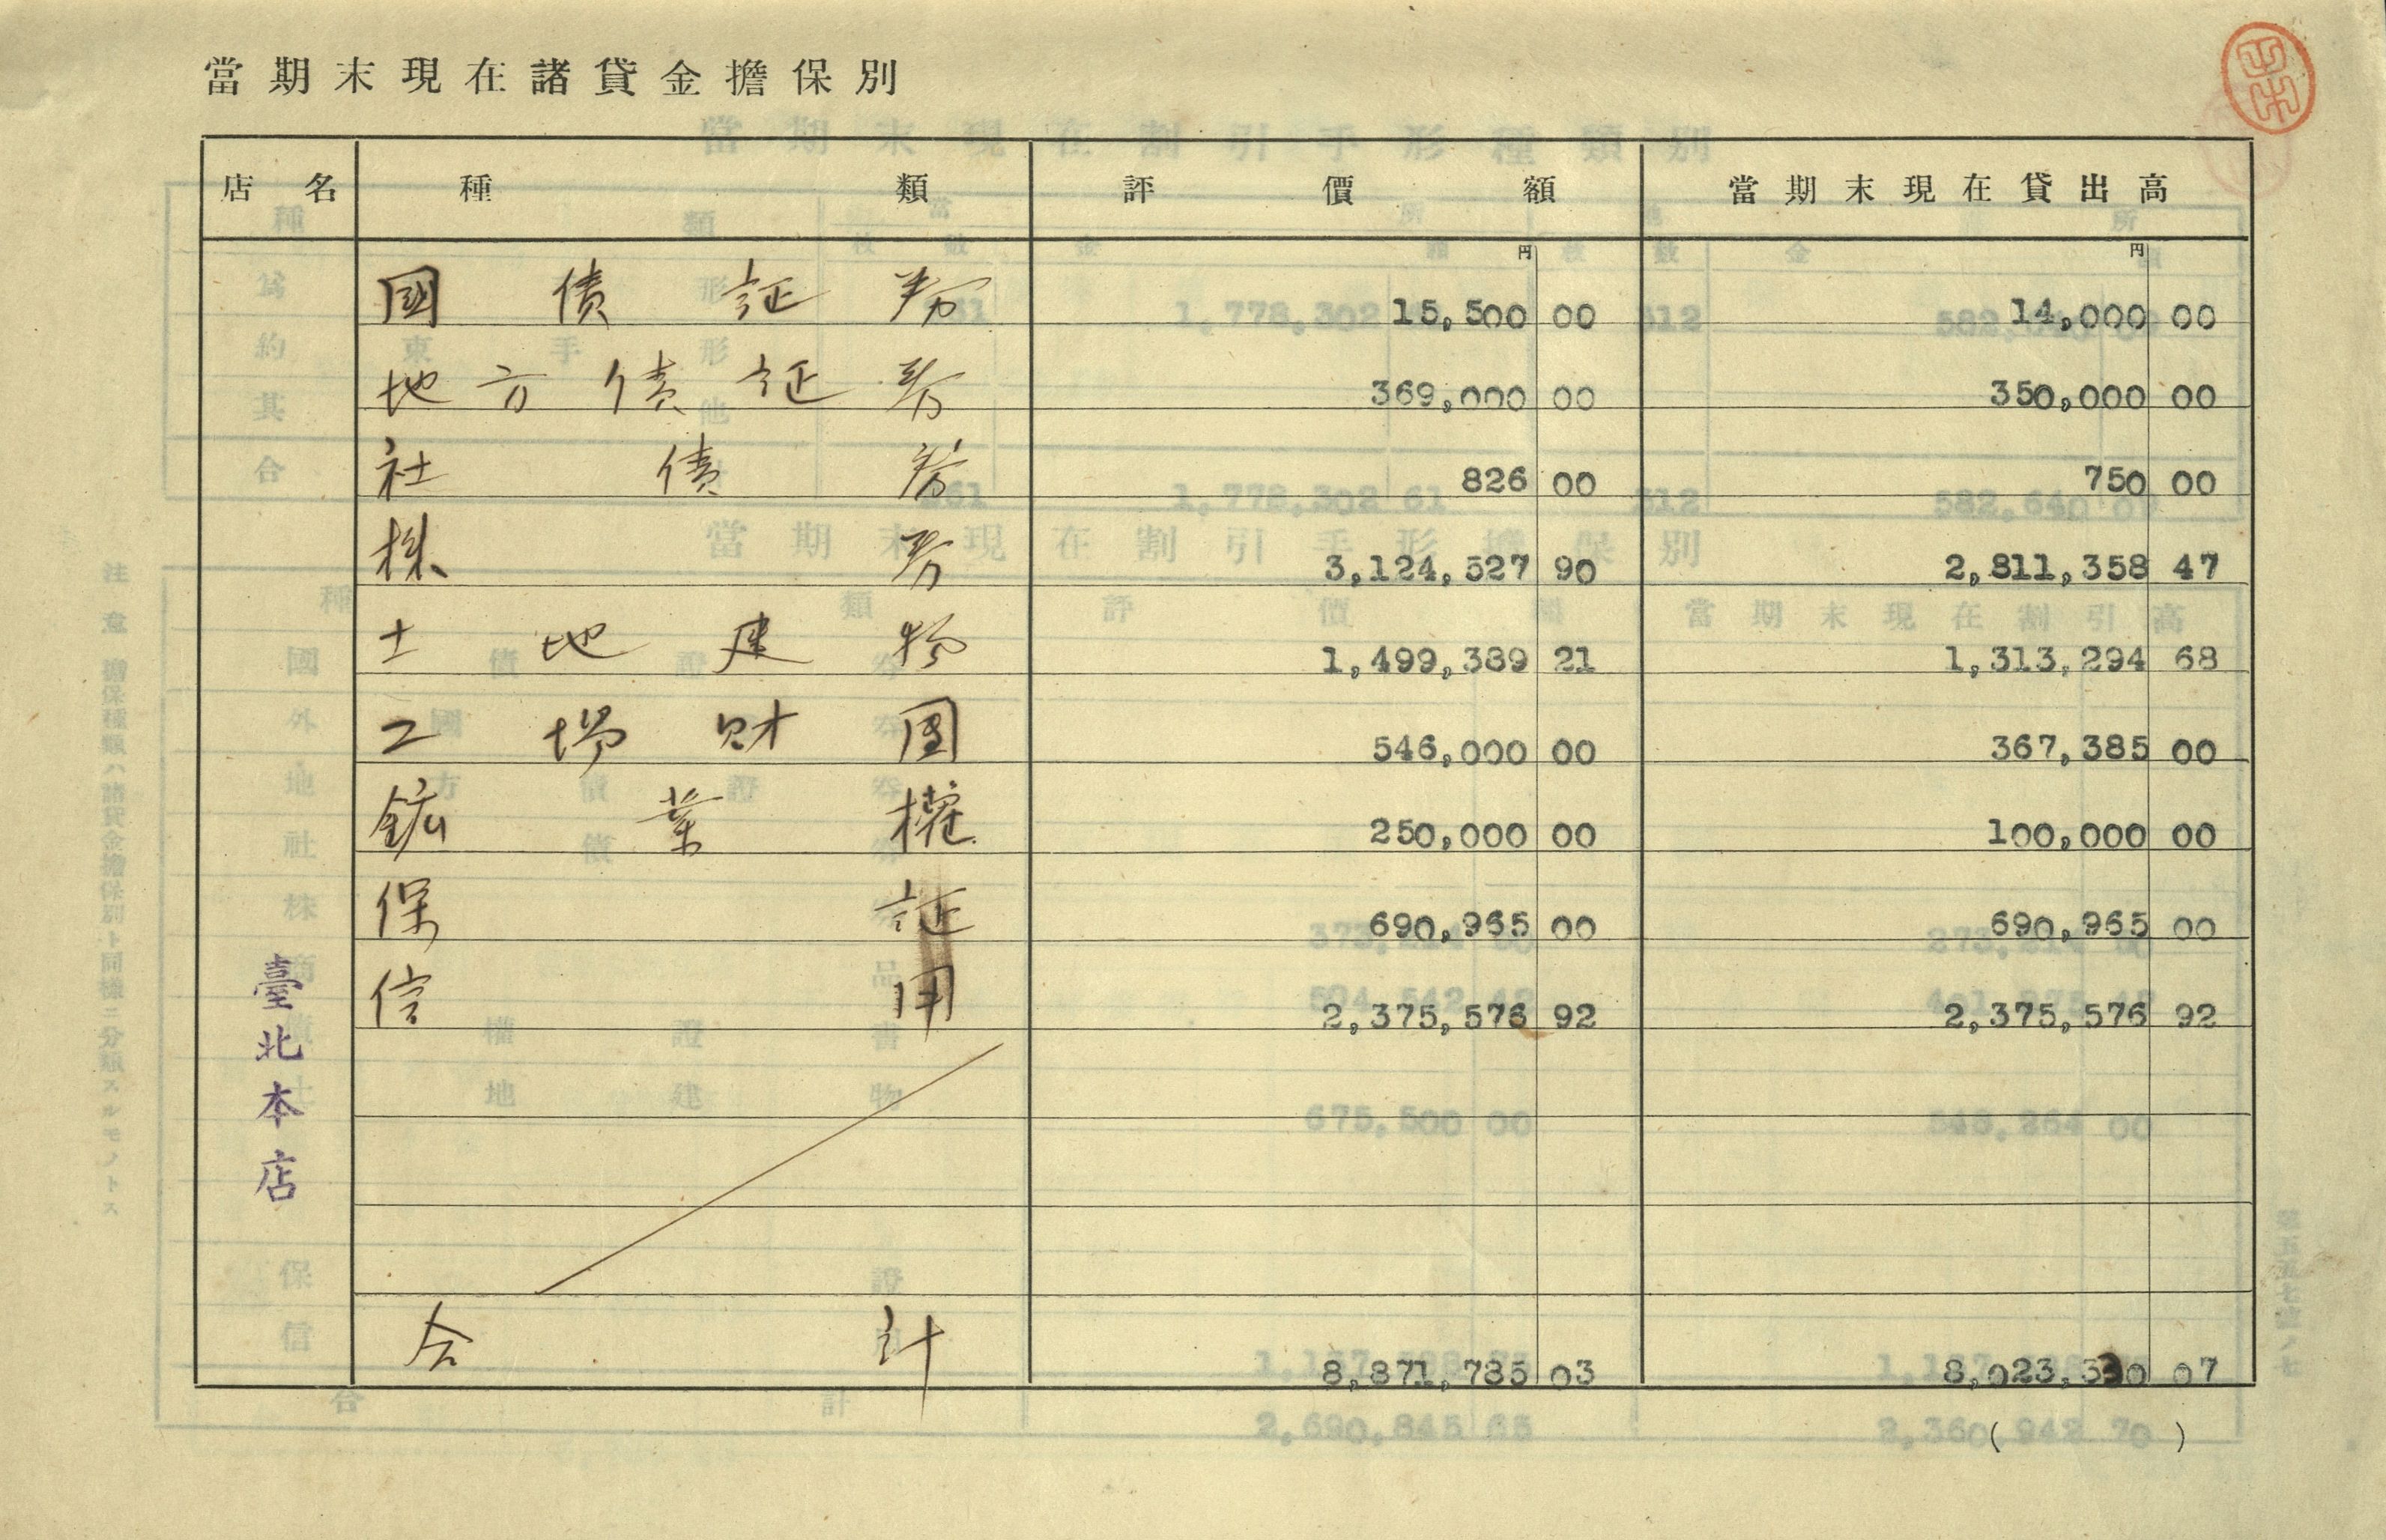 當期末現在諸貸金擔保別
店名 種類 評價額 當期末現在貸出高
円 円
國債証券 15,500 00 14,000 00
地方債証券 369,000 00 350,000 00
社債券 826 00 750 00
株券 3,124,527 90 2,811,358 47
土地建物 1,499,389 21 1,313,294 68
工場財団 546,000 00 367,385 00
鉱業権 250,000 00 100,000 00
保証 690,965 00 690,965 00
信用 2,375,576 92 2,375,576 92
臺北本店
合計 8,871,785 03 8,023,330 07
( )